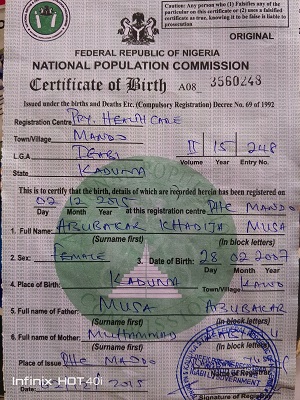 Caution: Any person who (1) Falsifies any of the particular on this certificate or (2) uses a falsified certificate as true, knowing it to be false is liable to prosecution
ORIGINAL
FEDERAL REPUBLIC OF NIGERIA
NATIONAL POPULATION COMMISSION
Certificate of Birth A08 3560248
Issued under the births and Deaths Etc, (Compulsory Registration) Decree No. 69 of 1992
Registration Centre PRY. HEALTH CARE
Town/Village MANDO
L.G.A II 15 248
Volume Year Entry No.
State KADUNA
This is to certify that the birth, details of which are recorded herein has been registered on
02 12 2015 at this registration centre PHC MANDO
Day Month Year
1. Full Name: ABUBAKAR KHADIJA MUSA
(Surname first) (In block letters)
2. Sex: FEMALE 3. Date of Birth: 28 02 2007
Day Month Year
4. Place of Birth: KADUNA KAWO
Town/Village
5. Full Name of Father: MUSA ABUBAKAR
(Surname first) (In block letters)
6. Full Name of Mother: MUHAMMAD
(Surname first) (In block letters)
Place of Issue PHC MANDO
Name of Registrar
Date: 2015
Signature of Registrar
Infinix HOT 40i